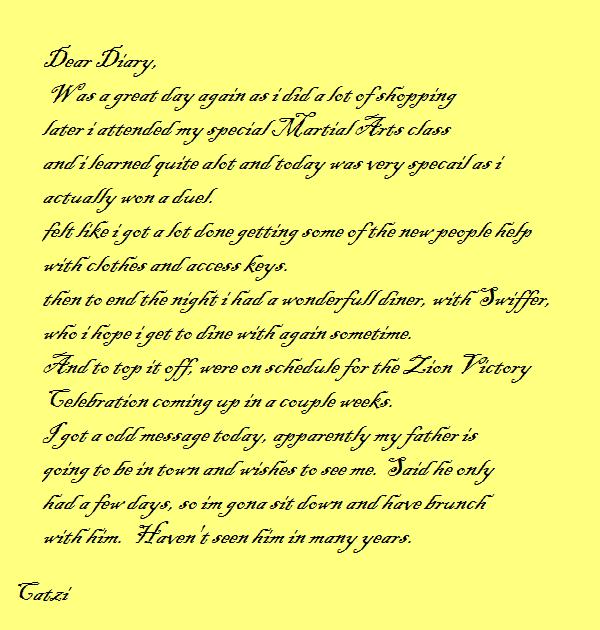 Dear Diary,
Was a great day again as i did a lot of shopping
later i attended my special Martial Arts class
and i learned quite alot and today was very specail as i
actually won a duel.
felt like i got a lot done getting some of the new people help
with clothes and access keys.
then to end the night i had a wonderfull diner, with Swiffer,
who i hope i get to dine with again sometime.
And to top it off, were on schedule for the Zion Victory
Celebration coming up in a couple weeks.
I got a odd message today, apparently my father is
going to be in town and wishes to see me. Said he only
had a few days, so im gona sit down and have brunch
with him. Haven't seen him in many years.
Catzi